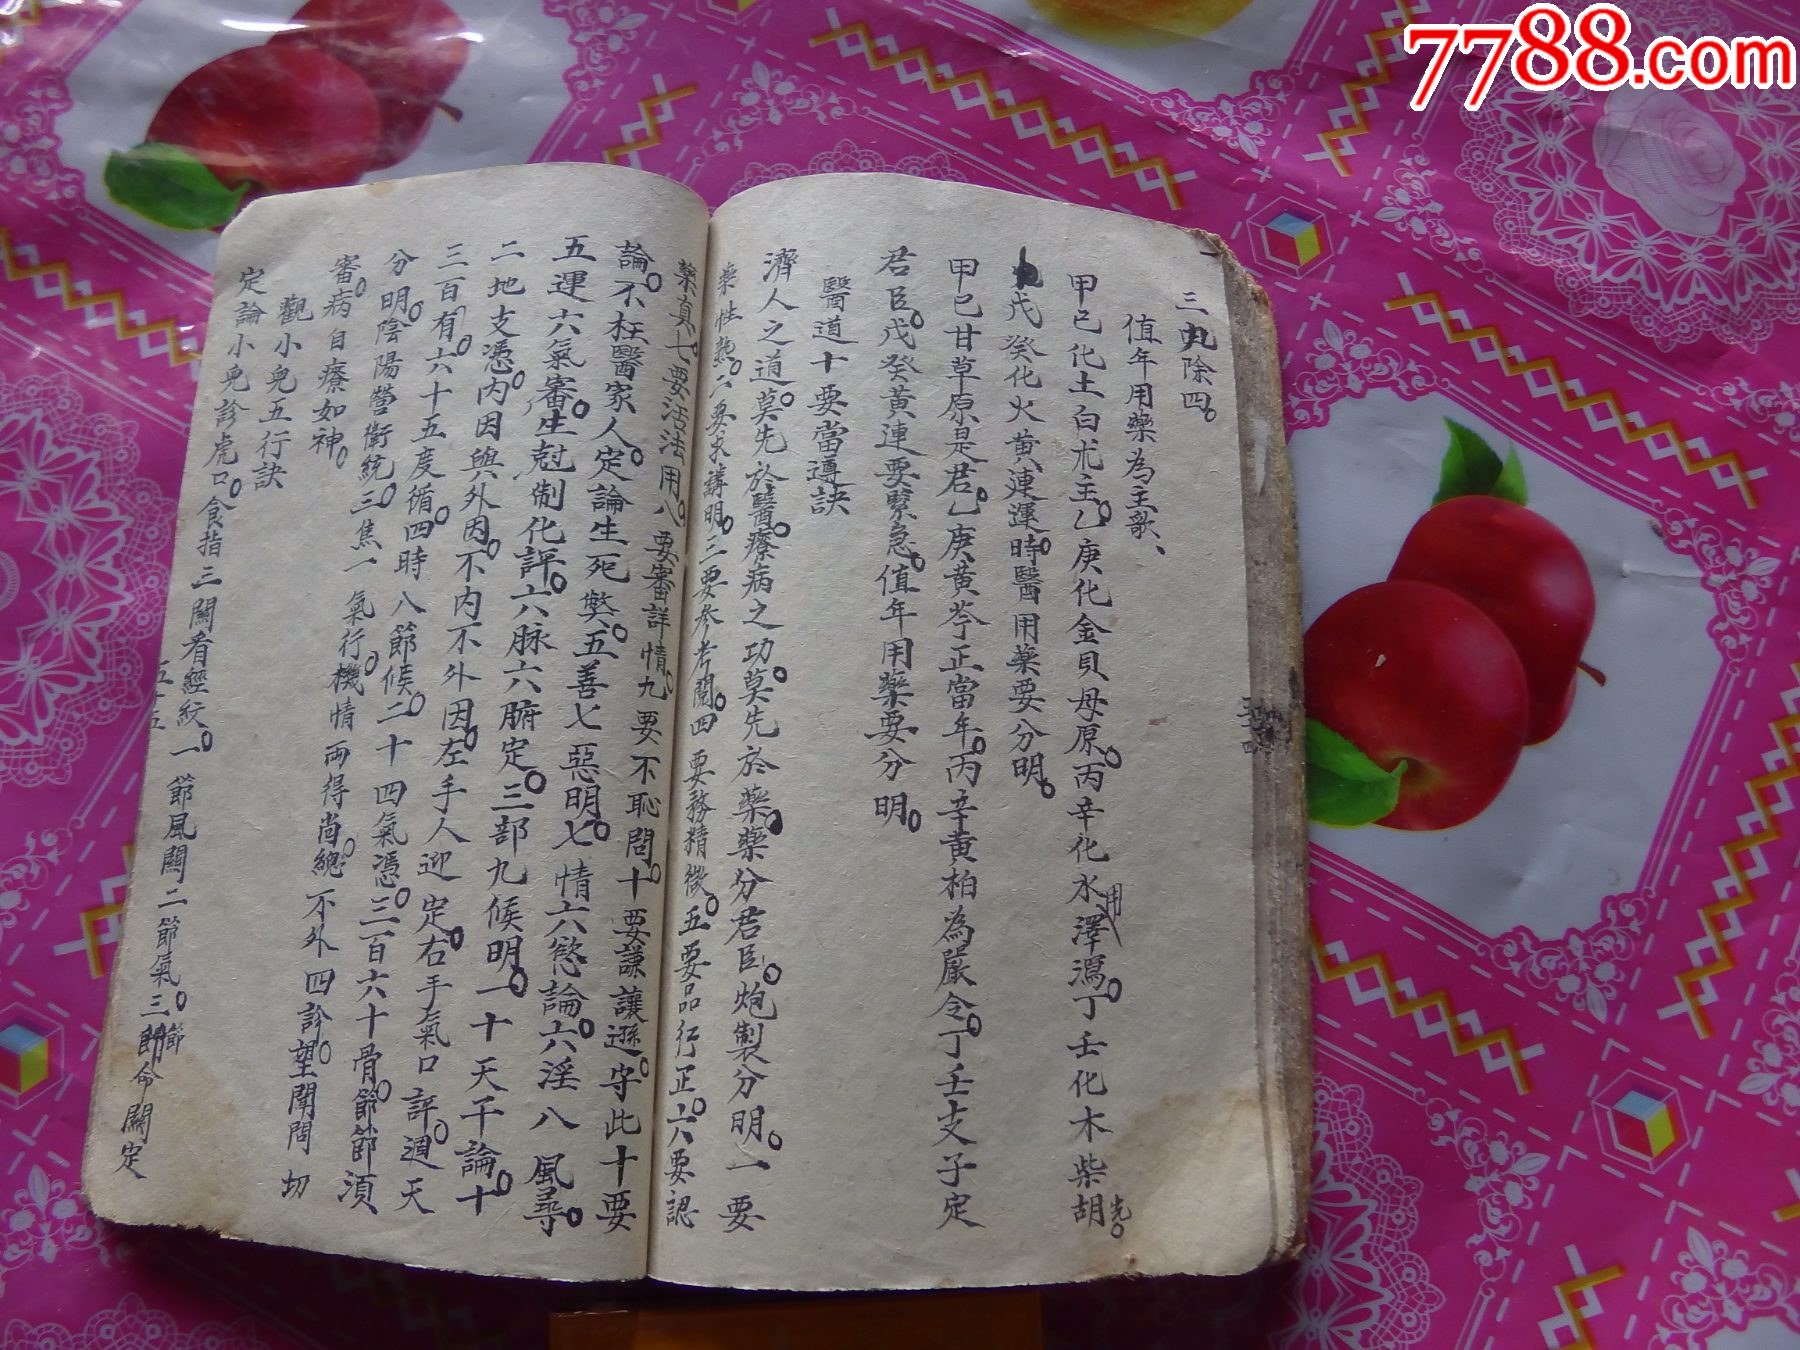 7788.com
三丸除四。
值年用藥為主歌、
甲己化土白朮主。乙庚化金貝母原。丙辛化水用澤瀉。丁壬化木柴胡先。
戊癸化火黄連運。時醫用藥要分明。
甲己甘草原是君。乙庚黄芩正當年。丙辛黄柏為嚴令。丁壬支子定
君臣。戊癸黄連要緊急。值年用藥要分明。
醫道十要當遵訣
濟人之道。莫先於醫。療病之功。莫先於藥。藥分君臣。炮製分明。一要
藥性熟。二要求講明。三要參考闊。四要務精微。五要品行正。六要認
藥真。七要活法用。八要審詳情。九要不恥問。十要謙讓遜。守此十要
論。不枉醫家人。定論生死獘。五善七惡明。七情六慾論。六淫八風尋。
五運六氣審。生尅制化評。六脉六腑定。三部九候明。一十天干論。十
二地支憑。内因與外因。不内不外因。左手人迎定。右手氣口評。週天
三百有。六十五度循。四時八節候。二十四氣憑。三百六十骨節。節須
分明。陰陽營衛統。三焦一氣行。機情兩得尚。總不外四診。望聞問切
審。病自療如神。
觀小兒五行訣
定論小兒診虎口。食指三關看經紋。一節風關二節氣。三節命關定
五十五